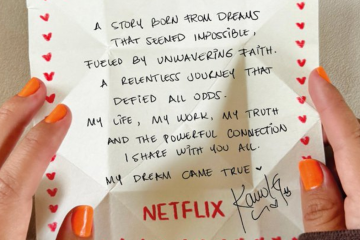 A STORY BORN FROM DREAMS
THAT SEEMED IMPOSSIBLE,
FUELED BY UNWAVERING FAITH.
A RELENTLESS JOURNEY THAT
DEFIED ALL ODDS.
MY LIFE, MY WORK, MY TRUTH
AND THE POWERFUL CONNECTION
I SHARE WITH YOU ALL.
MY DREAM CAME TRUE
NETFLIX